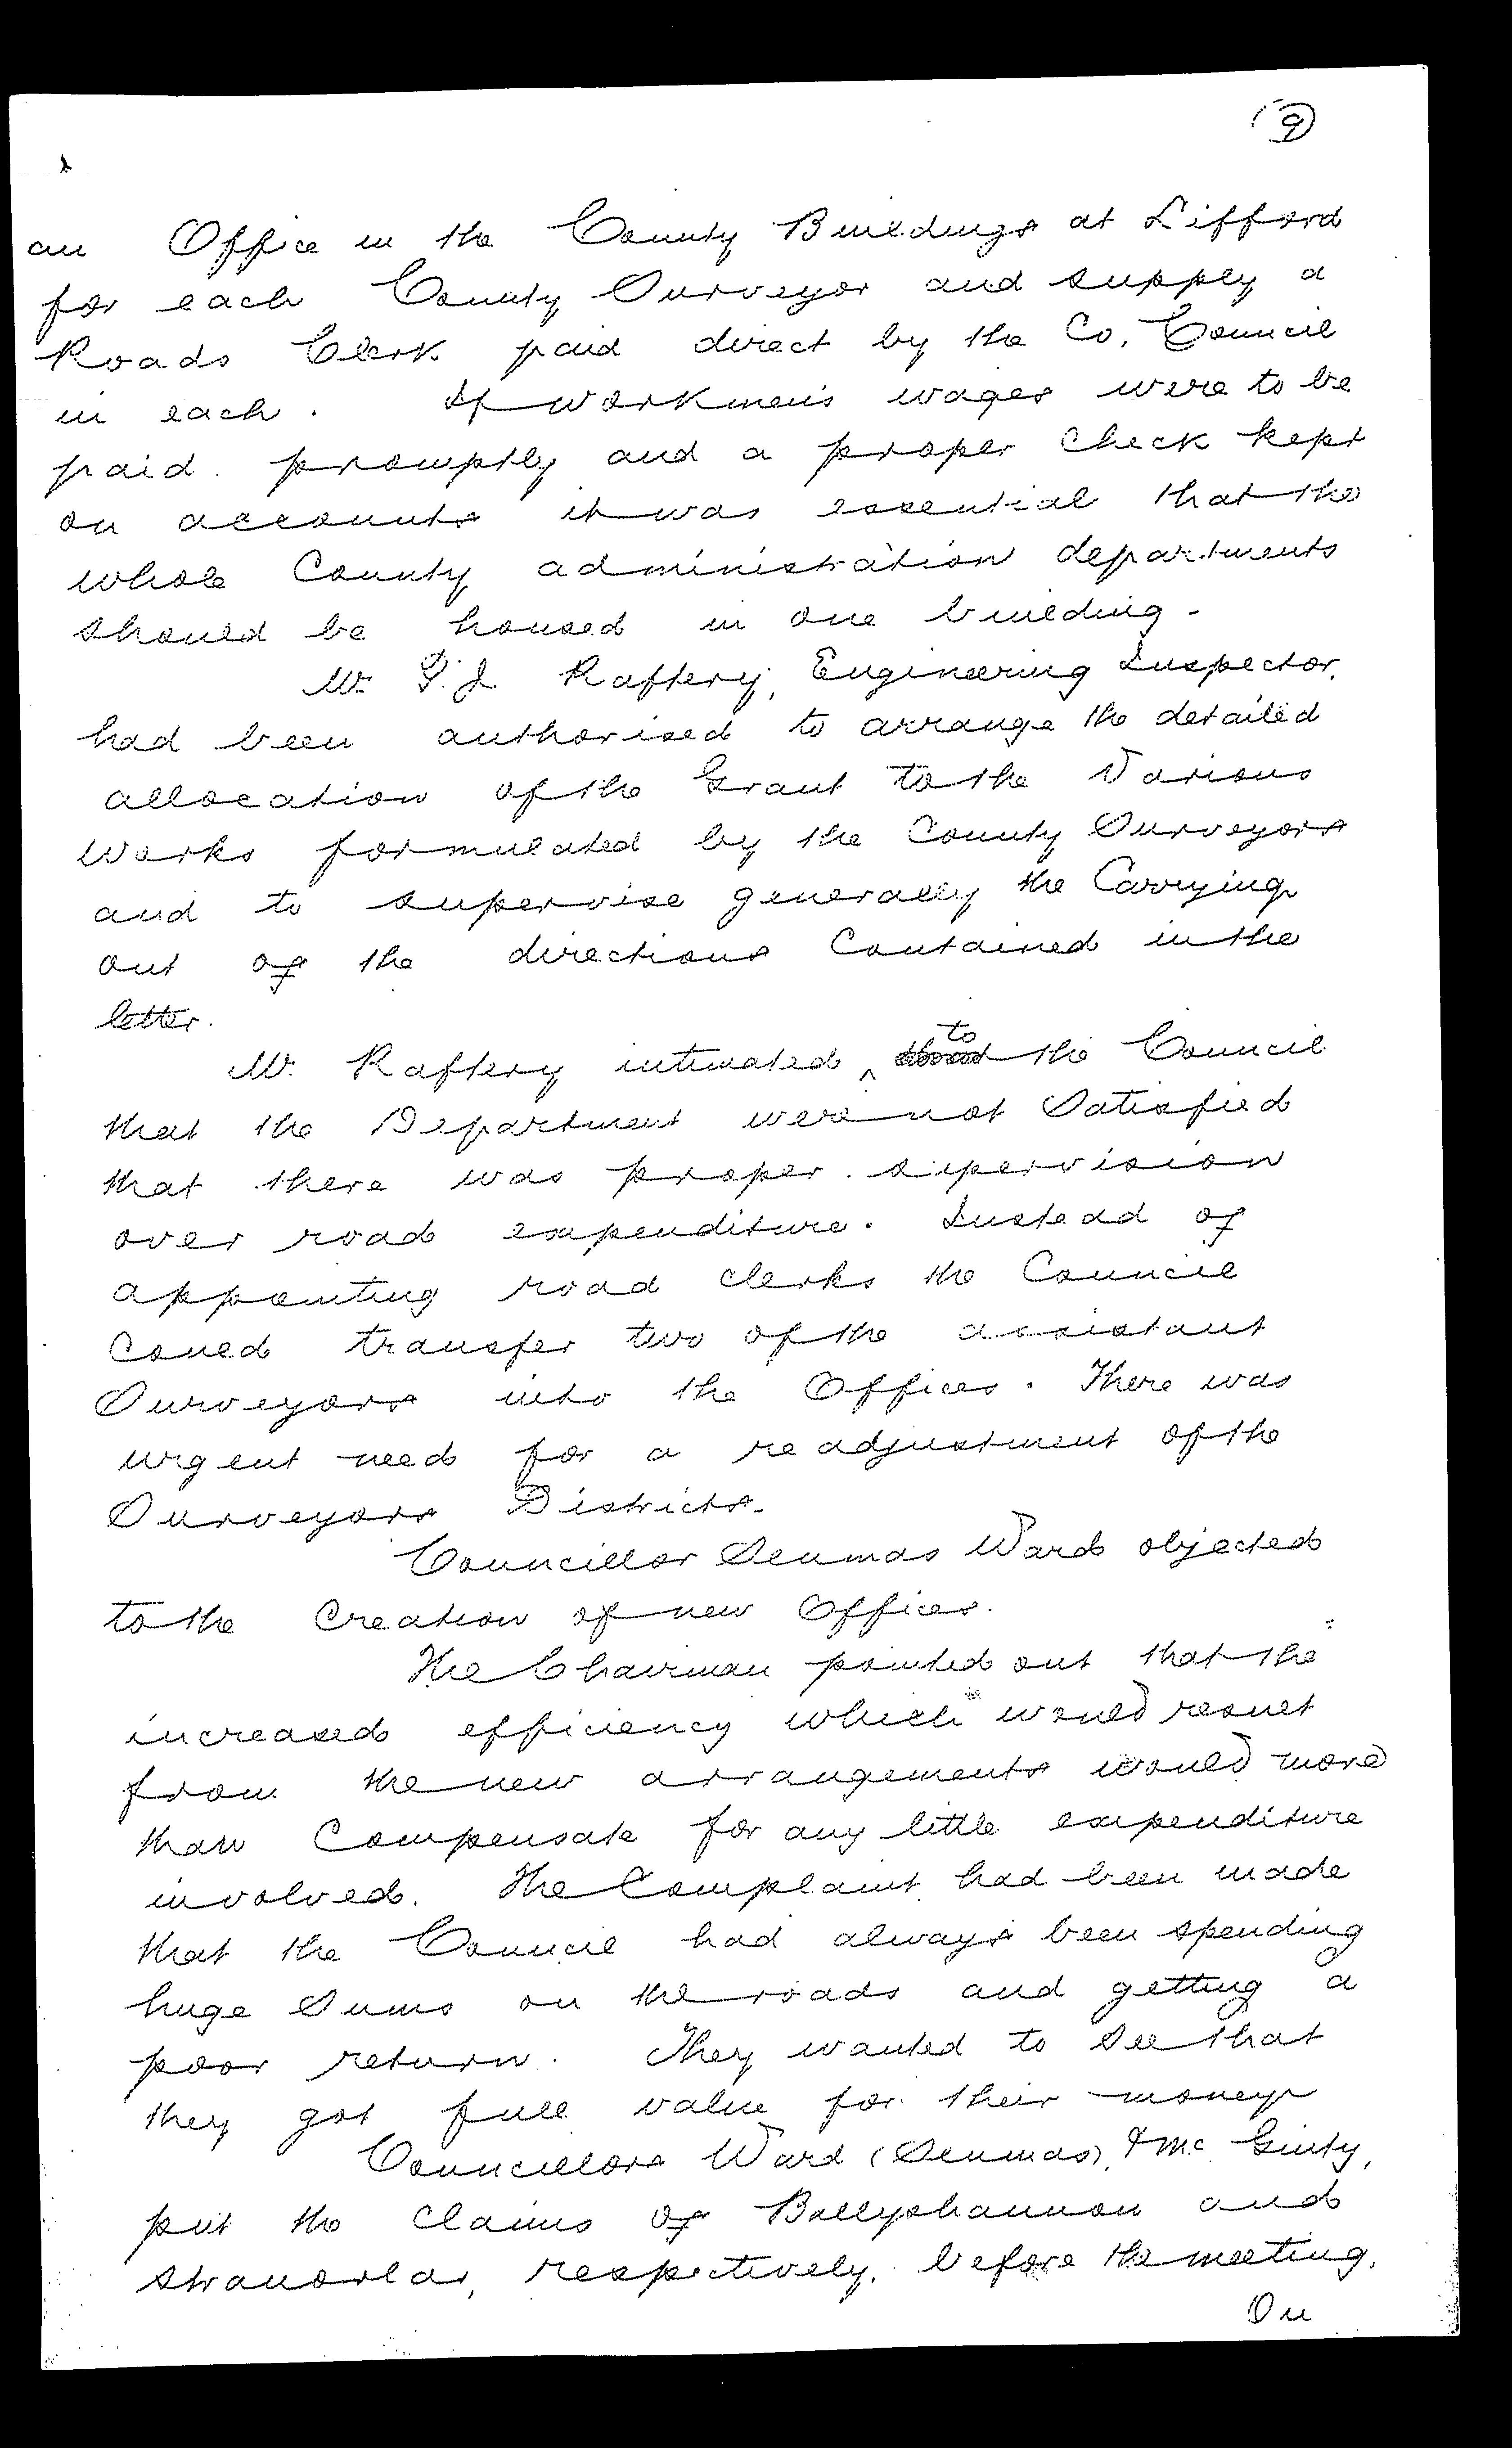 9
an Office in the County Buildings at Lifford
for each County Surveyor and supply a
Roads Clerk paid direct by the Co. Council
in each. If workmen's wages were to be
paid promptly and a proper check kept
on accounts it was essential that the
whole County administration departments
should be housed in one building.
Mr. P.J. Raftery, Engineering Inspector,
had been authorised to arrange the detailed
allocation of the Grant to the various
works formulated by the County Surveyors
and to supervise generally the Carrying
out of the directions Contained in the
letter.
Mr. Raftery intimated to the Council
that the Department were not Satisfied
that there was proper supervision
over road expenditure. Instead of
appointing road clerks the Council
Could transfer two of the assistant
Surveyors into the Offices. There was
urgent need for a readjustment of the
Surveyors Districts.
Councillor Seumas Ward objected
to the Creation of new Offices.
The Chairman pointed out that the
increased efficiency which would result
from the new arrangements would more
than Compensate for any little expenditure
involved. The Complaint had been made
that the Council had always been spending
huge Sums on the roads and getting a
poor return. They wanted to See that
they got full value for their money
Councillors Ward (Seumas), & Mc Ginty,
put the Claims of Ballyshannon and
Stranorlar, respectively, before the meeting.
On